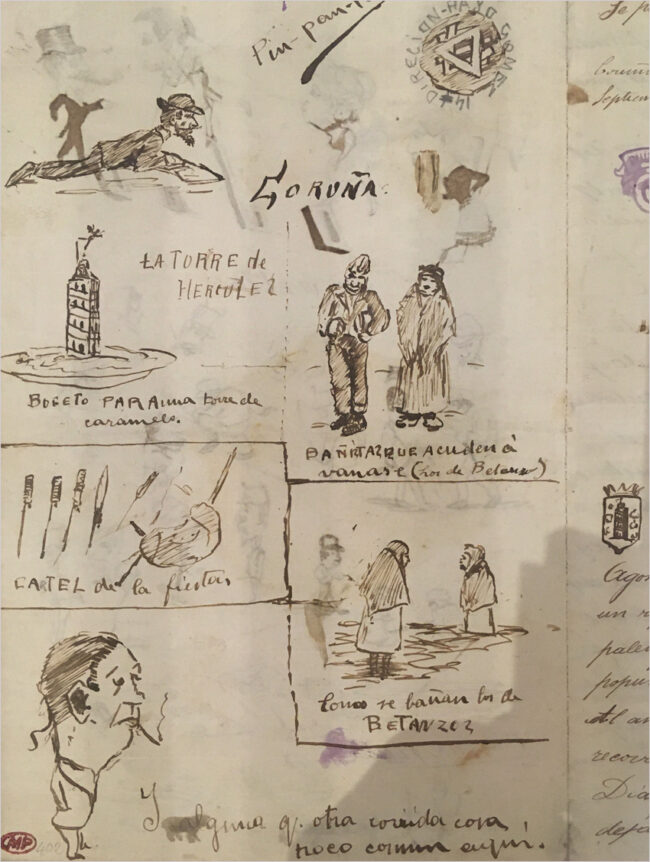 Pin-pan-
DIRECION-RAZO GOMEZ 14
CORUÑA.
LA TORRE de
HERCULEZ
BOCETO PARA una torre de
caramelo.
BAÑITAZ QUE Acuden á
vanase (los de Betanzo)
CATEL de la fiestas
Como se bañan los de
BETANZEZ
Y alguna q. otra corrida cosa
poco comun aquí.
MP
402
Septiem
Ago
un r
pale
popu
Al a
recorr
Dia
deja